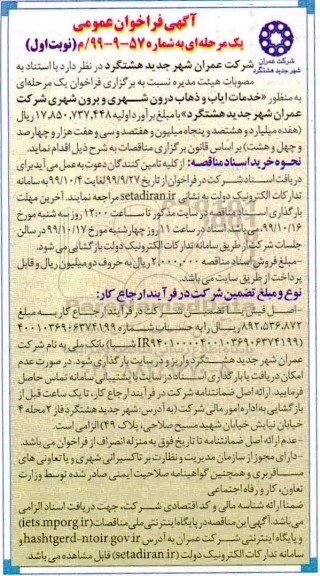 آگهی فراخوان عمومی
یک مرحله‌ای به شماره ۵۷-۹-۹۹/م (نوبت اول)
شرکت عمران
شهر جدید هشتگرد
شرکت عمران شهر جدید هشتگرد در نظر دارد با استناد به
مصوبات هیئت مدیره نسبت به برگزاری فراخوان یک مرحله‌ای
به منظور «خدمات ایاب و ذهاب درون شهری و برون شهری شرکت
عمران شهر جدید هشتگرد» با مبلغ برآورد اولیه ۱۷،۸۵۰،۷۳۷،۴۴۸ ریال
(هفده میلیارد و هشتصد و پنجاه میلیون و هفتصد و سی و هفت هزار و چهارصد
و چهل و هشت) بر اساس قانون برگزاری مناقصات به شرح ذیل اقدام نماید.
نحوه خرید اسناد مناقصه: از کلیه تامین کنندگان دعوت به عمل می‌آید برای
دریافت اسناد شرکت در فراخوان از تاریخ ۹۹/۹/۲۷ لغایت ۹۹/۱۰/۴ به سامانه
تدارکات الکترونیک دولت به نشانی setadiran.ir مراجعه نمایند. آخرین مهلت
بارگذاری اسناد مناقصه در سایت مذکور تا ساعت ۱۲:۰۰ روز سه شنبه مورخ
۹۹/۱۰/۱۶ می‌باشد. اسناد در ساعت ۱۱ روز چهارشنبه مورخ ۹۹/۱۰/۱۷ در سالن
جلسات شرکت از طریق سامانه تدارکات الکترونیک دولت بازگشایی می شود.
-مبلغ فروش اسناد مناقصه ۲،۰۰۰،۰۰۰ ریال به حروف دو میلیون ریال و قابل
پرداخت از طریق سایت می باشد.
نوع و مبلغ تضمین شرکت در فرآیند ارجاع کار:
-اصل فیش یا ضمانتنامه شرکت در فرآیند ارجاع کار به مبلغ
۸۹۲،۵۳۶،۸۷۲ ریال را به حساب شماره ۴۰۰۱۰۳۶۹۰۶۳۷۴۱۹۹
بانک ملی به نام شرکت
عمران شهر جدید هشتگرد واریز و در سایت بارگذاری شود. در صورت عدم
امکان دریافت یا بارگذاری اسناد در سایت با پشتیبانی سامانه تماس حاصل
فرمایید. ارائه اصل ضمانتنامه شرکت در فرآیند ارجاع کار، تا یک ساعت قبل از
بازگشایی به اداره امور مالی شرکت (به آدرس: شهر جدید هشتگرد فاز ۲ محله ۴
خیابان نیایش خیابان شهید مسیح صلاحی، پلاک ۴۹) الزامی است.
-عدم ارائه اصل ضمانتنامه تا تاریخ فوق به منزله انصراف از فراخوان می باشد.
-دارای مجوز از سازمان مدیریت و نظارت بر تاکسیرانی شهری و یا تعاونی های
مسافربری و همچنین گواهینامه صلاحیت ایمنی صادر شده توسط وزارت
تعاون، کار و رفاه اجتماعی
ضمنا ارائه شناسه مالی و کد اقتصادی شرکت، جهت دریافت اسناد الزامی
می باشد. آگهی این مناقصه در پایگاه اینترنتی ملی مناقصات (iets.mporg.ir)
و پایگاه اینترنتی شرکت عمران به آدرس hashtgerd-ntoir.gov.ir و
تدارکات الکترونیک دولت (setadiran.ir) قابل مشاهده می باشد.